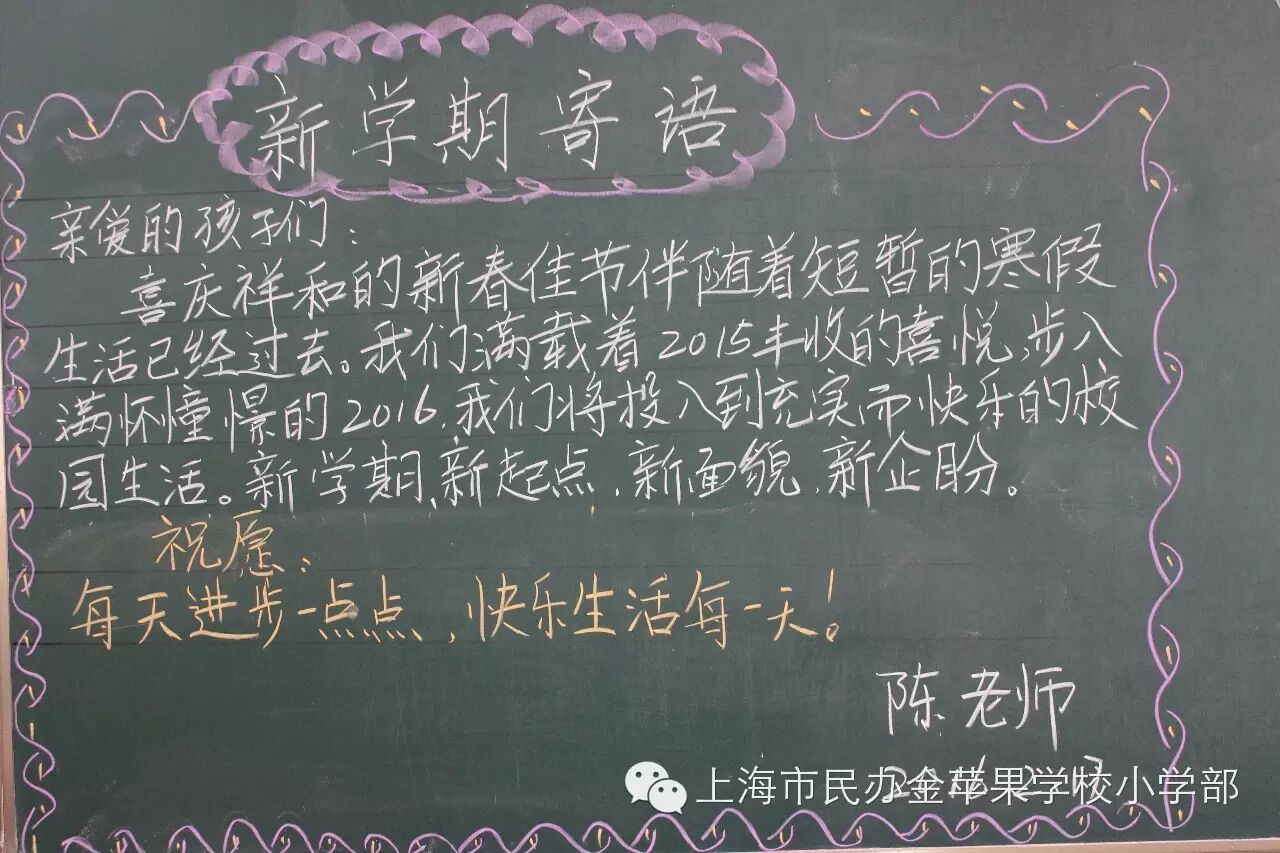 新学期寄语
亲爱的孩子们：
喜庆祥和的新春佳节伴随着短暂的寒假
生活已经过去。我们满载着2015丰收的喜悦，步入
满怀憧憬的2016，我们将投入到充实而快乐的校
园生活。新学期，新起点，新面貌，新企盼。
祝愿：
每天进步一点点，快乐生活每一天！
陈老师
上海市民办金苹果学校小学部